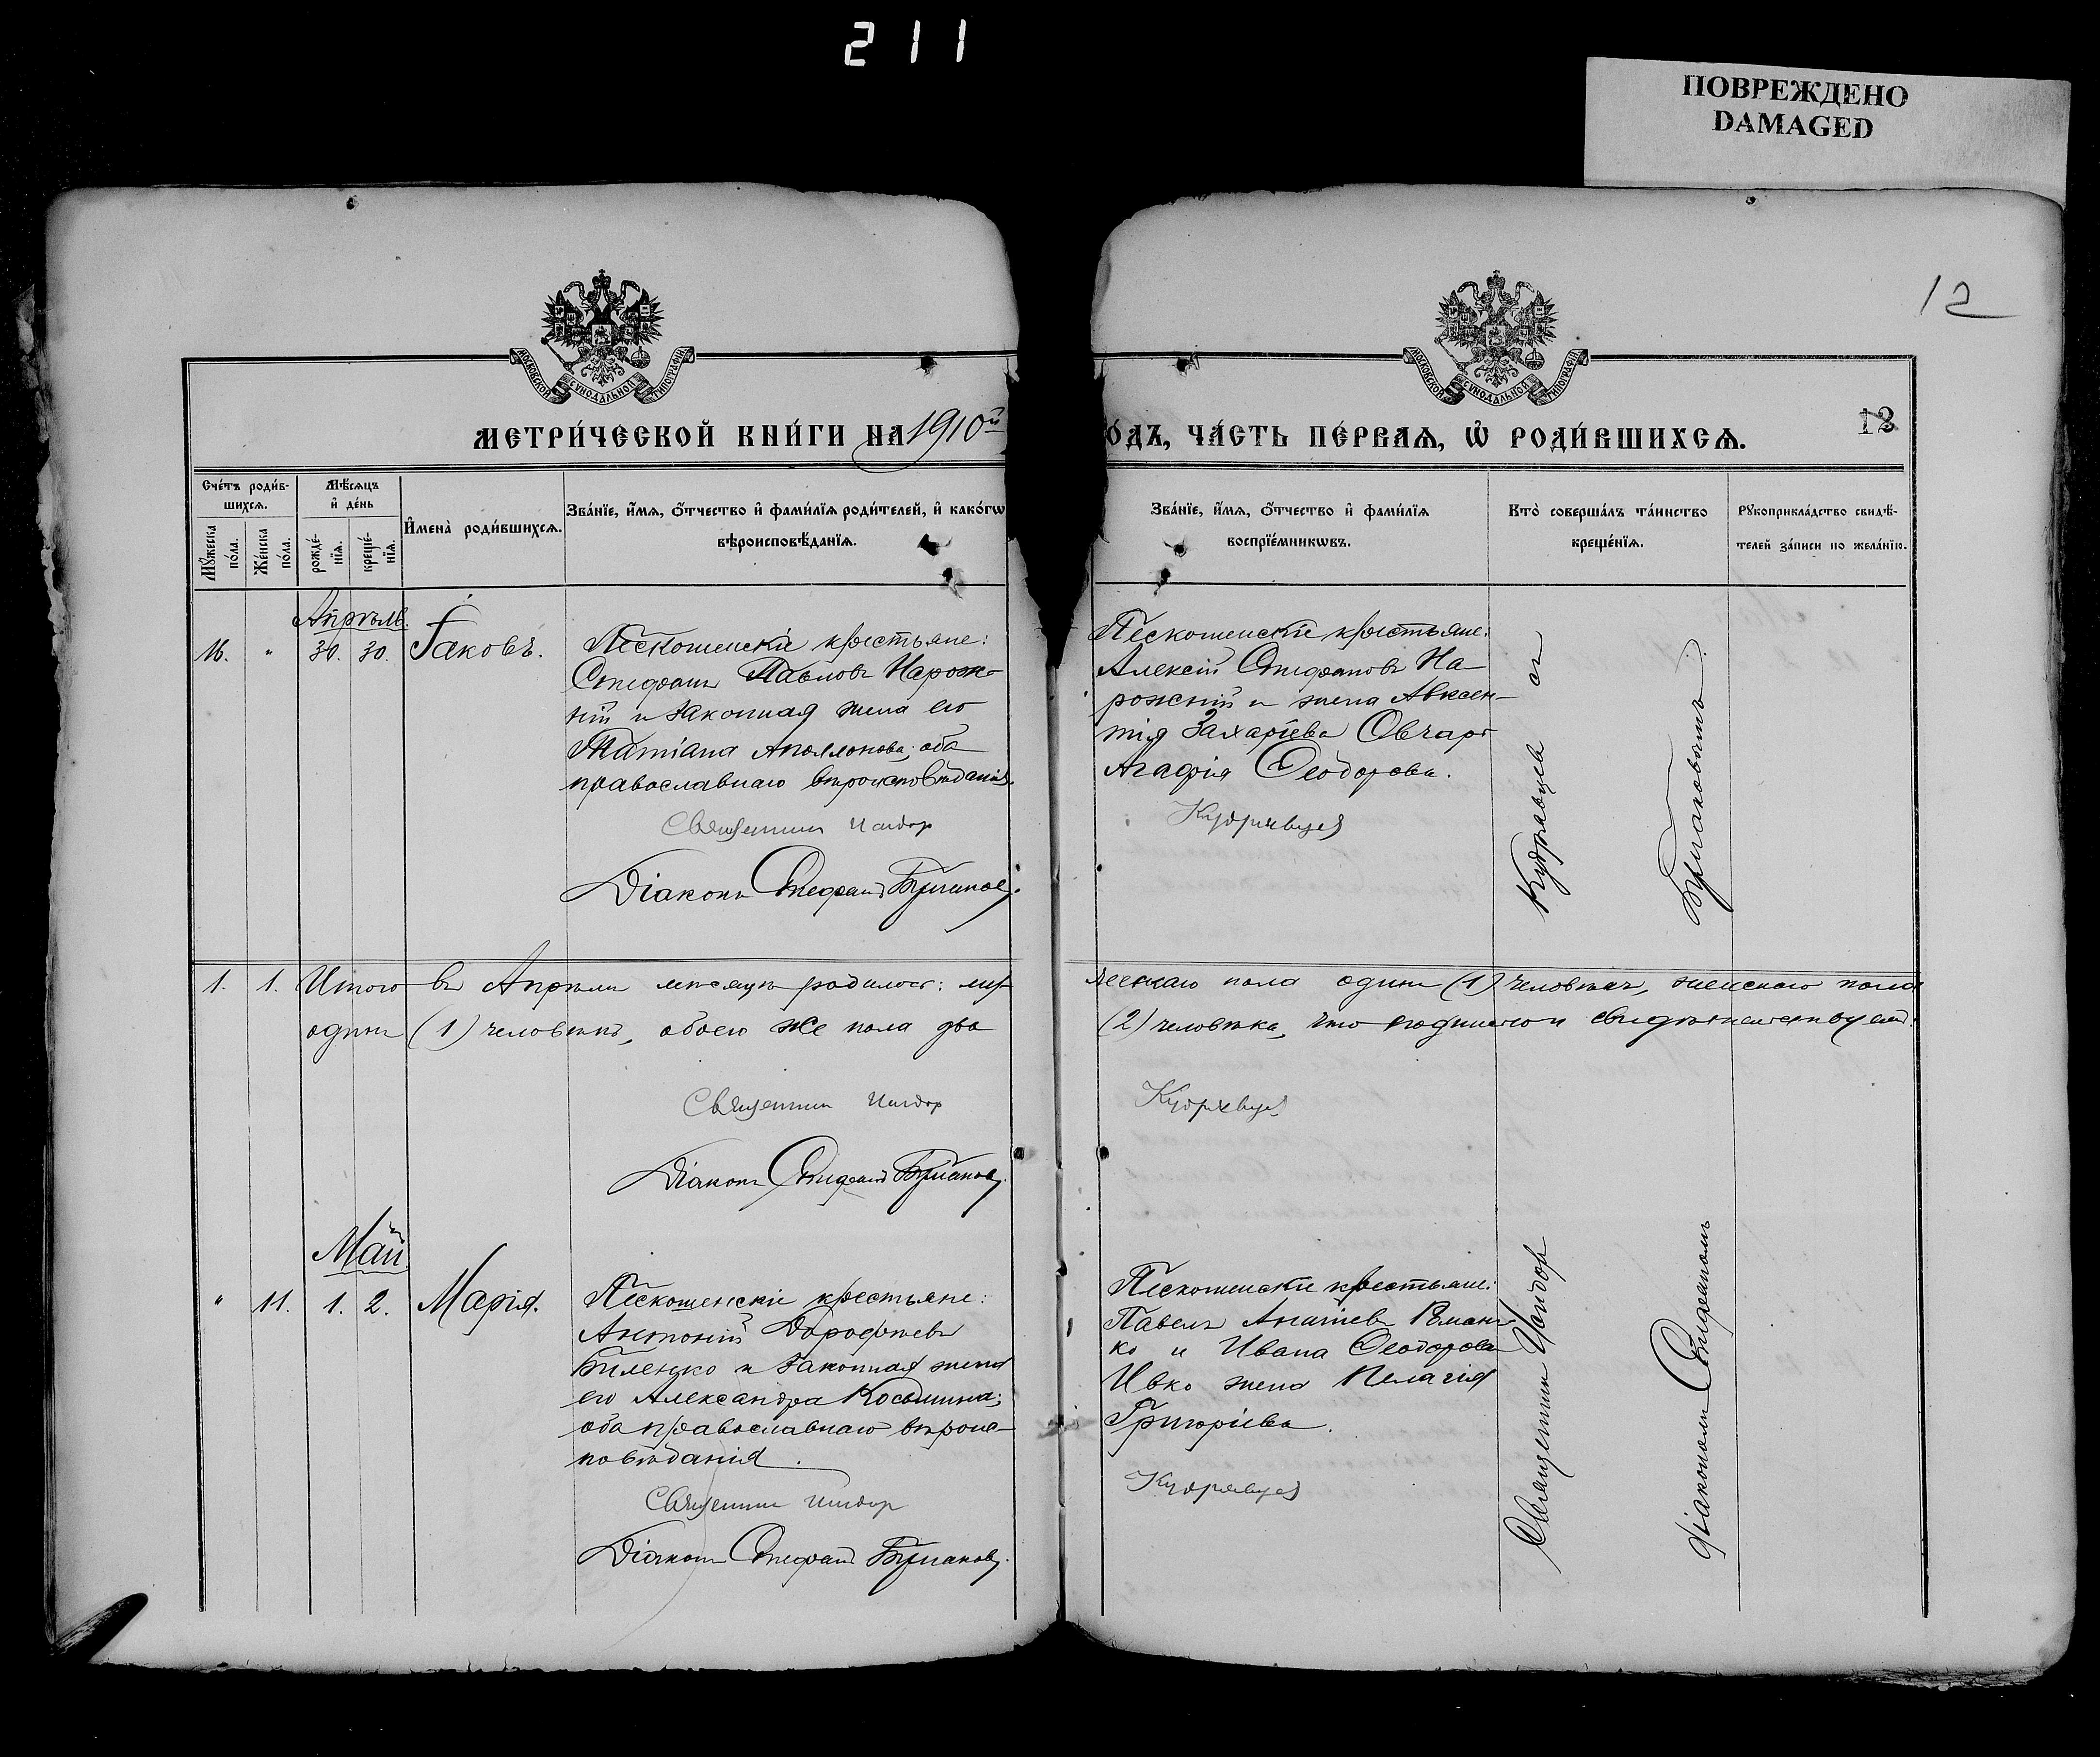 211
ПОВРЕЖДЕНО
DAMAGED
12
МОСКОВСКОЙ СѴНОДАЛЬНОЙ ТИПОГРАФІИ
МОСКОВСКОЙ СѴНОДАЛЬНОЙ ТИПОГРАФІИ
МЕТРИ́ЧЕСКОЙ КНИ́ГИ НА 1910й
О́ДЪ, ЧА́СТЬ ПЕ́РВАѦ, Ѡ҆ РОДИ́ВШИХСѦ.
12
Сче́тъ роди́в-
шихсѧ.
Мꙋ́жеска
по́ла.
Же́нска
по́ла.
Мѣ́сѧцъ
и҆ де́нь
рожде́-
нїѧ.
креще́-
нїѧ.
И҆мена̀ роди́вшихсѧ.
Зва́нїе, и҆́мѧ, ѻ҆́тчество и҆ фами́лїѧ роди́телей, и҆ како́гѡ
вѣроисповѣ́данїѧ.
Зва́нїе, и҆́мѧ, ѻ҆́тчество и҆ фами́лїѧ
воспрїе́мникѡвъ.
Кто̀ соверша́лъ та́инство
креще́нїѧ.
Рꙋкоприкла́дство свидѣ́-
телей за́писи по жела́нїю.
Апрѣль.
16. " 30. 30. Іаковъ.
Пескошенскіе крестьяне:
Стефанъ Павловъ Нарож-
ній и законная жена его
Татіана Аполлонова; оба
православнаго вѣроисповѣданія.
Священникъ Исидор
Діаконъ Стефанъ Бурлаковъ.
Пескошенскіе крестьяне:
Алексій Стефановъ На-
рожній и жена Авксен-
тія Захаріева Овчар
Агафія Ѳеодорова.
Кудрявцев
Кудрявцевъ съ
Бурлаковымъ.
1. 1. Итого въ Апрѣлѣ мѣсяцѣ родилось: му-
жескаго пола одинъ (1) человѣкъ, женскаго пола
одинъ (1) человѣкъ, обоего же пола два
(2) человѣка, что подписью и свидѣтельствуемъ.
Священникъ Исидор
Кудрявцев
Діаконъ Стефанъ Бурлаковъ.
Май.
" 11. 1. 2. Марія.
Пескошенскіе крестьяне:
Антоній Дорофѣевъ
Биленко и законная жена
его Александра Косьмина;
оба православнаго вѣроис-
повѣданія.
Священникъ Исидор
Діаконъ Стефанъ Бурлаковъ.
Пескошенскіе крестьяне:
Павелъ Роман-
ко и Ивана Ѳеодорова
Ивко жена Пелагія
Григоріева.
Кудрявцев
Священникъ Исидор
Діакономъ Стефаномъ